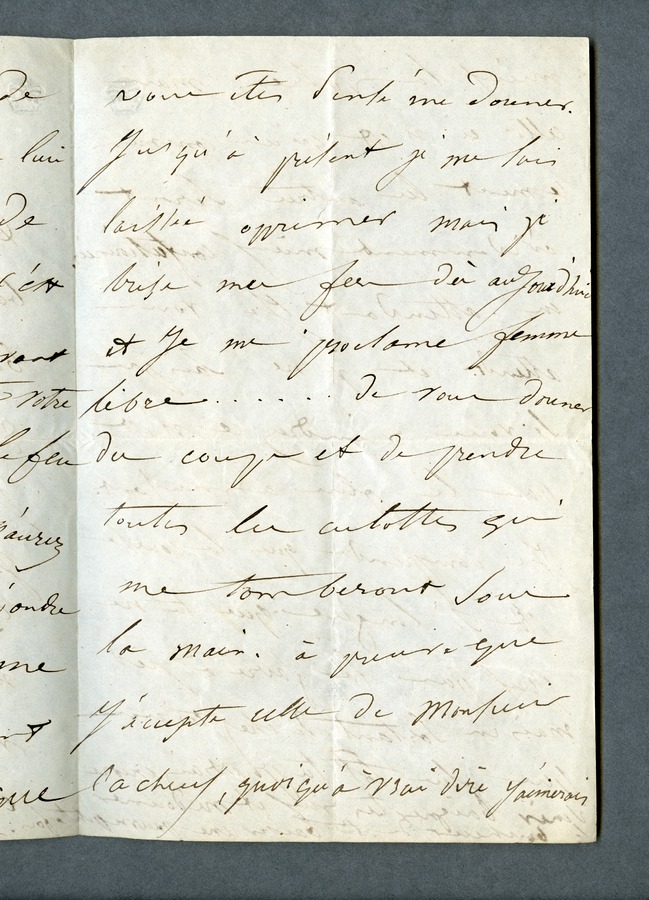 de
lui
de
c'est
vant
votre
le feu
n'aurez
pondre
me
nt
que
vous etes pensé me donner.
Jusqu'à présent je me suis
laissée oprimer mais je
brise mes fers dès aujourd'hui
et Je me proclame femme
libre . . . . . . . de vous donner
des coups et de prendre
toutes les culottes qui
me tomberont sous
la main. à preuve que
J'accepte celle de Monsieur
Lacheuf, quoiqu'à vrai dire j'aimerais